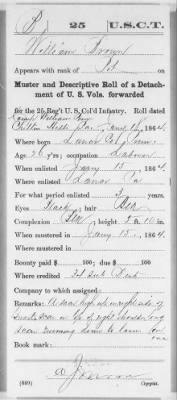 B | 25 | U.S.C.T.
William Brown
Appears with rank of Pvt on
Muster and Descriptive Roll of a Detachment
of U. S. Vols. forwarded
for the 25 Reg't U. S. Col'd Infantry. Roll dated
Camp William Penn
Chelton Hills Pa., Jany 15, 1864.
Where born
Age 26 y'rs; occupation Laborer
When enlisted Jany 15, 1864.
Where enlisted Pa
For what period enlisted 3 years.
Eyes Black; hair Blk
Complexion Blk; height 5 ft. 10 in.
When mustered in Jany 15, 1864.
Where mustered in
Bounty paid $ 100; due $ 100
Where credited 24 Sub Dist
Company to which assigned:
Remarks: A scar high up on right side of
scar on of right shoulder, long
scar running down to
Book mark:
(639) Copyist.